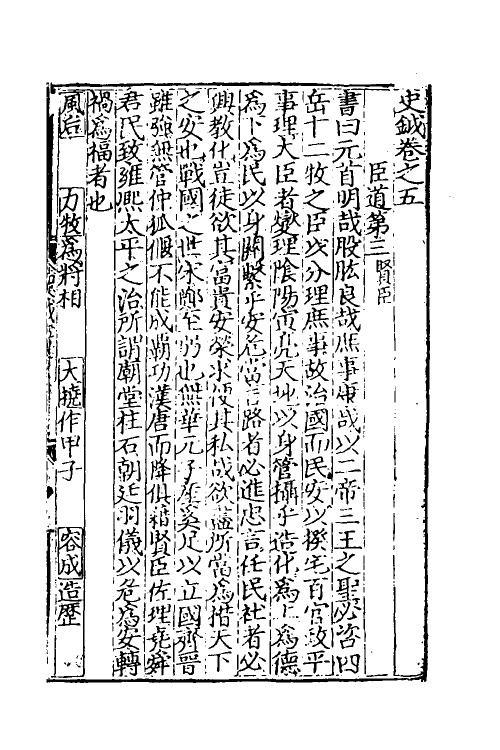 史鉞卷之五
臣道第三 賢臣
書曰元首明哉股肱良哉庶事康哉以二帝三王之聖必咨四
岳十二牧之臣以分理庶事故治國而民安以揆宅百官敘平
事理大臣者爕理陰陽寅亮天地以身管攝乎造化為上為德
為下為民以身關繫乎安危當言路者必進忠言任民社者必
興教化豈徒欲其富貴安榮求便其私哉欲盡所當為措天下
之安也戰國之世宋鄭至弱也無華元子產奚足以立國齊晉
雖強無管仲狐偃不能成霸功漢唐而降俱藉賢臣佐理堯舜
君民致雍熙太平之治所謂廟堂柱石朝廷羽儀以危為安轉
禍為福者也
風后 力牧為將相 大撓作甲子 容成造歷